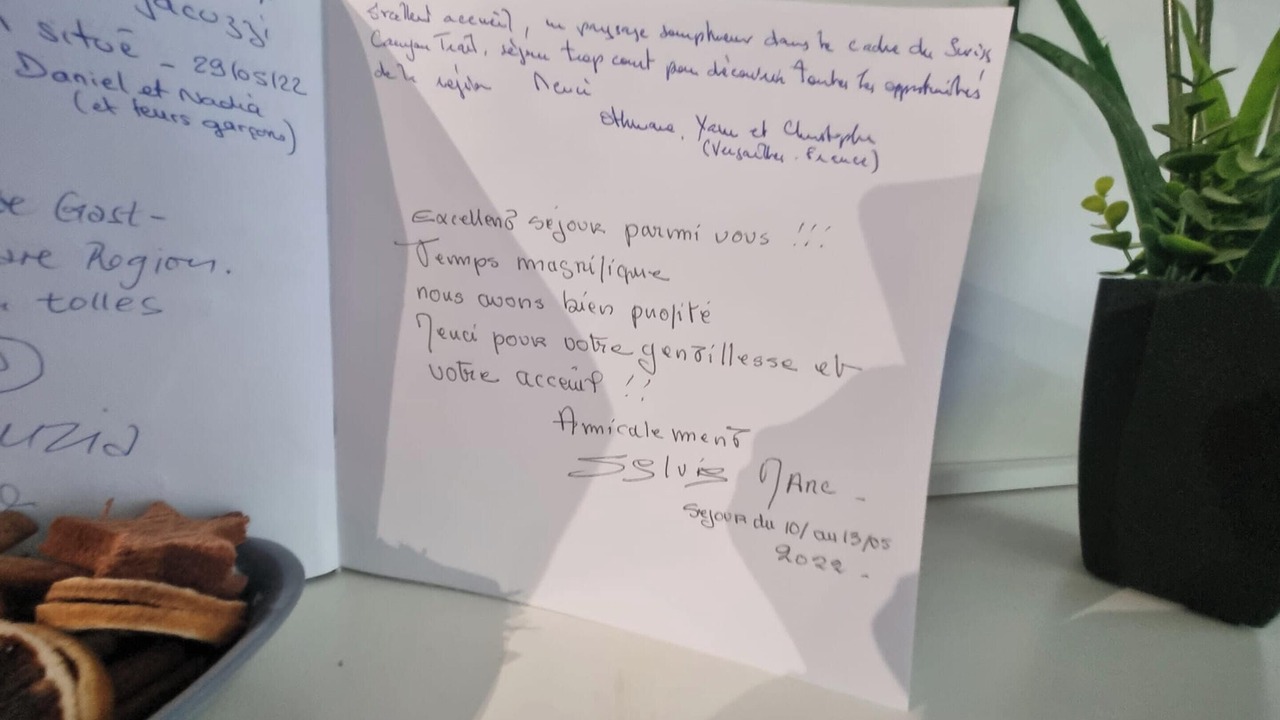 Jacuzzi
situé - 29/05/22
Daniel et Nadia
(et leurs garçons)
Gast-
Region.
tolles
Excellent accueil, un paysage somptueux dans le cadre du Swiss
Canyon Trail, séjour trop court pour découvrir toutes les opportunités
de la région Merci
Othmane, Yann et Christophe
(Versailles - France)
Excellent séjour parmi vous !!!
Temps magnifique
nous avons bien profité
Merci pour votre gentillesse et
votre acceuil !!
Amicalement
Sylvie Marc -
Sejour du 10/ au 13/05
2022 -